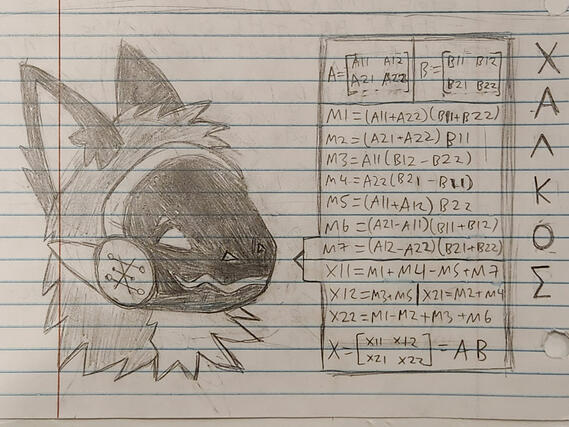 A=[A11 A12 B=[B11 B12
A21 A22] B21 B22]
M1=(A11+A22)(B11+B22)
M2=(A21+A22)B11
M3=A11(B12-B22)
M4=A22(B21-B11)
M5=(A11+A12)B22
M6=(A21-A11)(B11+B12)
M7=(A12-A22)(B21+B22)
X11=M1+M4-M5+M7
X12=M3+M5|X21=M2+M4
X22=M1-M2+M3+M6
X=[X11 X12
X21 X22]=AB
Χ
Α
Λ
Κ
Ο
Σ